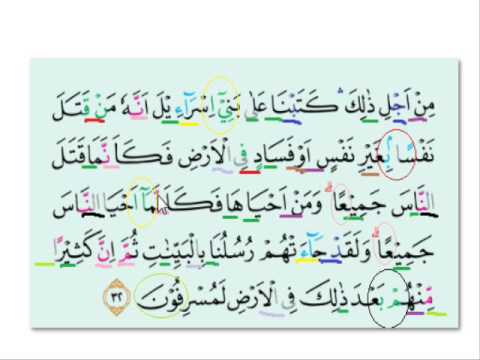 مِنْ اَجْلِ ذٰلِكَ ۛ كَتَبْنَا عَلٰى بَنِيْٓ اِسْرَاۤءِيْلَ اَنَّهٗ مَنْ قَتَلَ
نَفْسًا بِۢغَيْرِ نَفْسٍ اَوْ فَسَادٍ فِى الْاَرْضِ فَكَاَنَّمَا قَتَلَ
النَّاسَ جَمِيْعًا ۗ وَمَنْ اَحْيَاهَا فَكَاَنَّمَآ اَحْيَا النَّاسَ
جَمِيْعًا ۗ وَلَقَدْ جَاۤءَتْهُمْ رُسُلُنَا بِالْبَيِّنٰتِ ثُمَّ اِنَّ كَثِيْرًا
مِّنْهُمْ بَعْدَ ذٰلِكَ فِى الْاَرْضِ لَمُسْرِفُوْنَ ٣٢